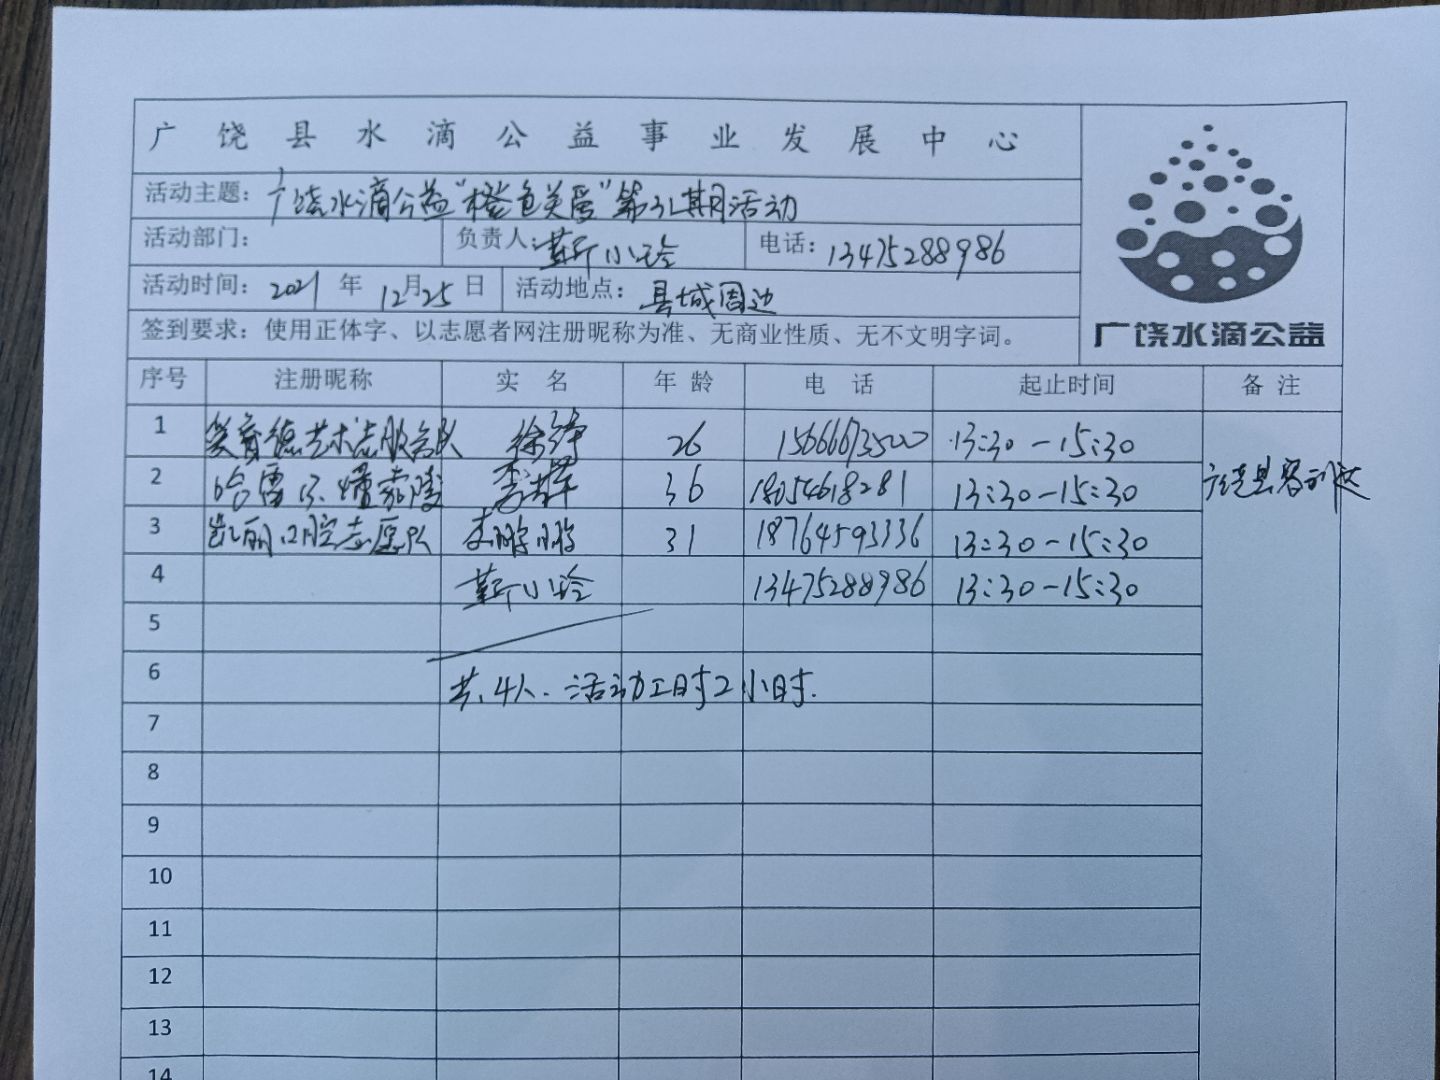 广饶县水滴公益事业发展中心
活动主题：广饶水滴公益“橙色关爱”第 期活动
活动部门： 负责人：靳小玲 电话：13475288986
活动时间：2021年12月25日 活动地点：县城周边
签到要求：使用正体字、以志愿者网注册昵称为准、无商业性质、无不文明字词。
广饶水滴公益
序号 注册昵称 实名 年龄 电话 起止时间 备注
1 艺术志服务队 徐 26 15666673500 13:30-15:30
2 哈雷 李 36 18054618281 13:30-15:30 广饶县
3 凯丽口腔志愿队 李鹏鹏 31 18764593336 13:30-15:30
4 靳小玲 13475288986 13:30-15:30
5
6 共4人.活动工时2小时.
7
8
9
10
11
12
13
14